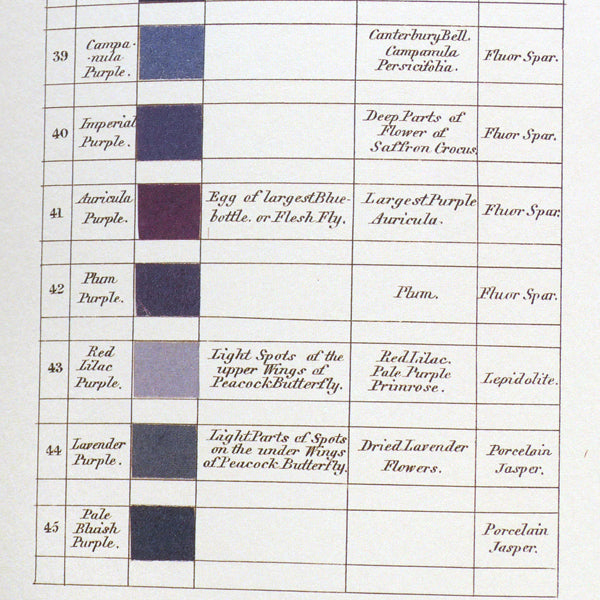 39
Campa-
-nula
Purple.
Canterbury Bell.
Campanula
Persicifolia.
Fluor Spar.
40
Imperial
Purple.
Deep Parts of
Flower of
Saffron Crocus.
Fluor Spar.
41
Auricula
Purple.
Egg of largest Blue-
bottle. or Flesh Fly.
Largest Purple
Auricula.
Fluor Spar.
42
Plum
Purple.
Plum.
Fluor Spar.
43
Red
Lilac
Purple.
Light Spots of the
upper Wings of
Peacock Butterfly.
Red Lilac.
Pale Purple
Primrose.
Lepidolite.
44
Lavender
Purple.
Light Parts of Spots
on the under Wings
of Peacock Butterfly.
Dried Lavender
Flowers.
Porcelain
Jasper.
45
Pale
Bluish
Purple.
Porcelain
Jasper.